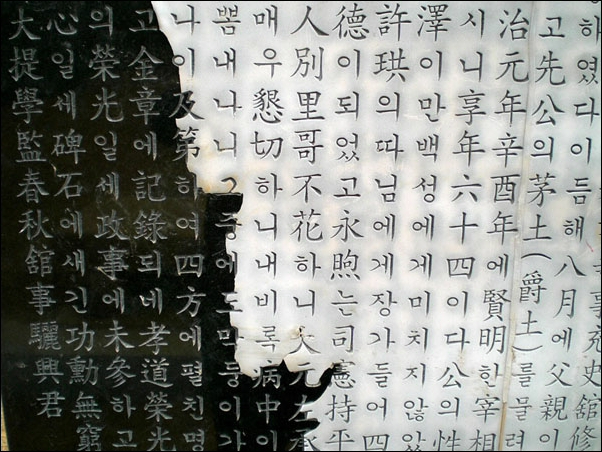 事充史舘修
하였다이듬해八月에父親이
고先公의茅土(爵土)를물려
治元年辛酉年에賢明한宰相
시니享年六十四이다公의性
澤이만백성에게미치지않았
許珙의따님에게장가들어四
德이되었고永煦는司憲持平
人別里哥不花하니大元左丞
매우懇切하니내비록病中이
뽐내나니그중에도만둥이가
나이及第하여四方에펼친명
고金章에記錄되네孝道榮光
의榮光일세政事에未參하고
心일세碑石에새긴功勳無窮
大提學監春秋舘事驪興君